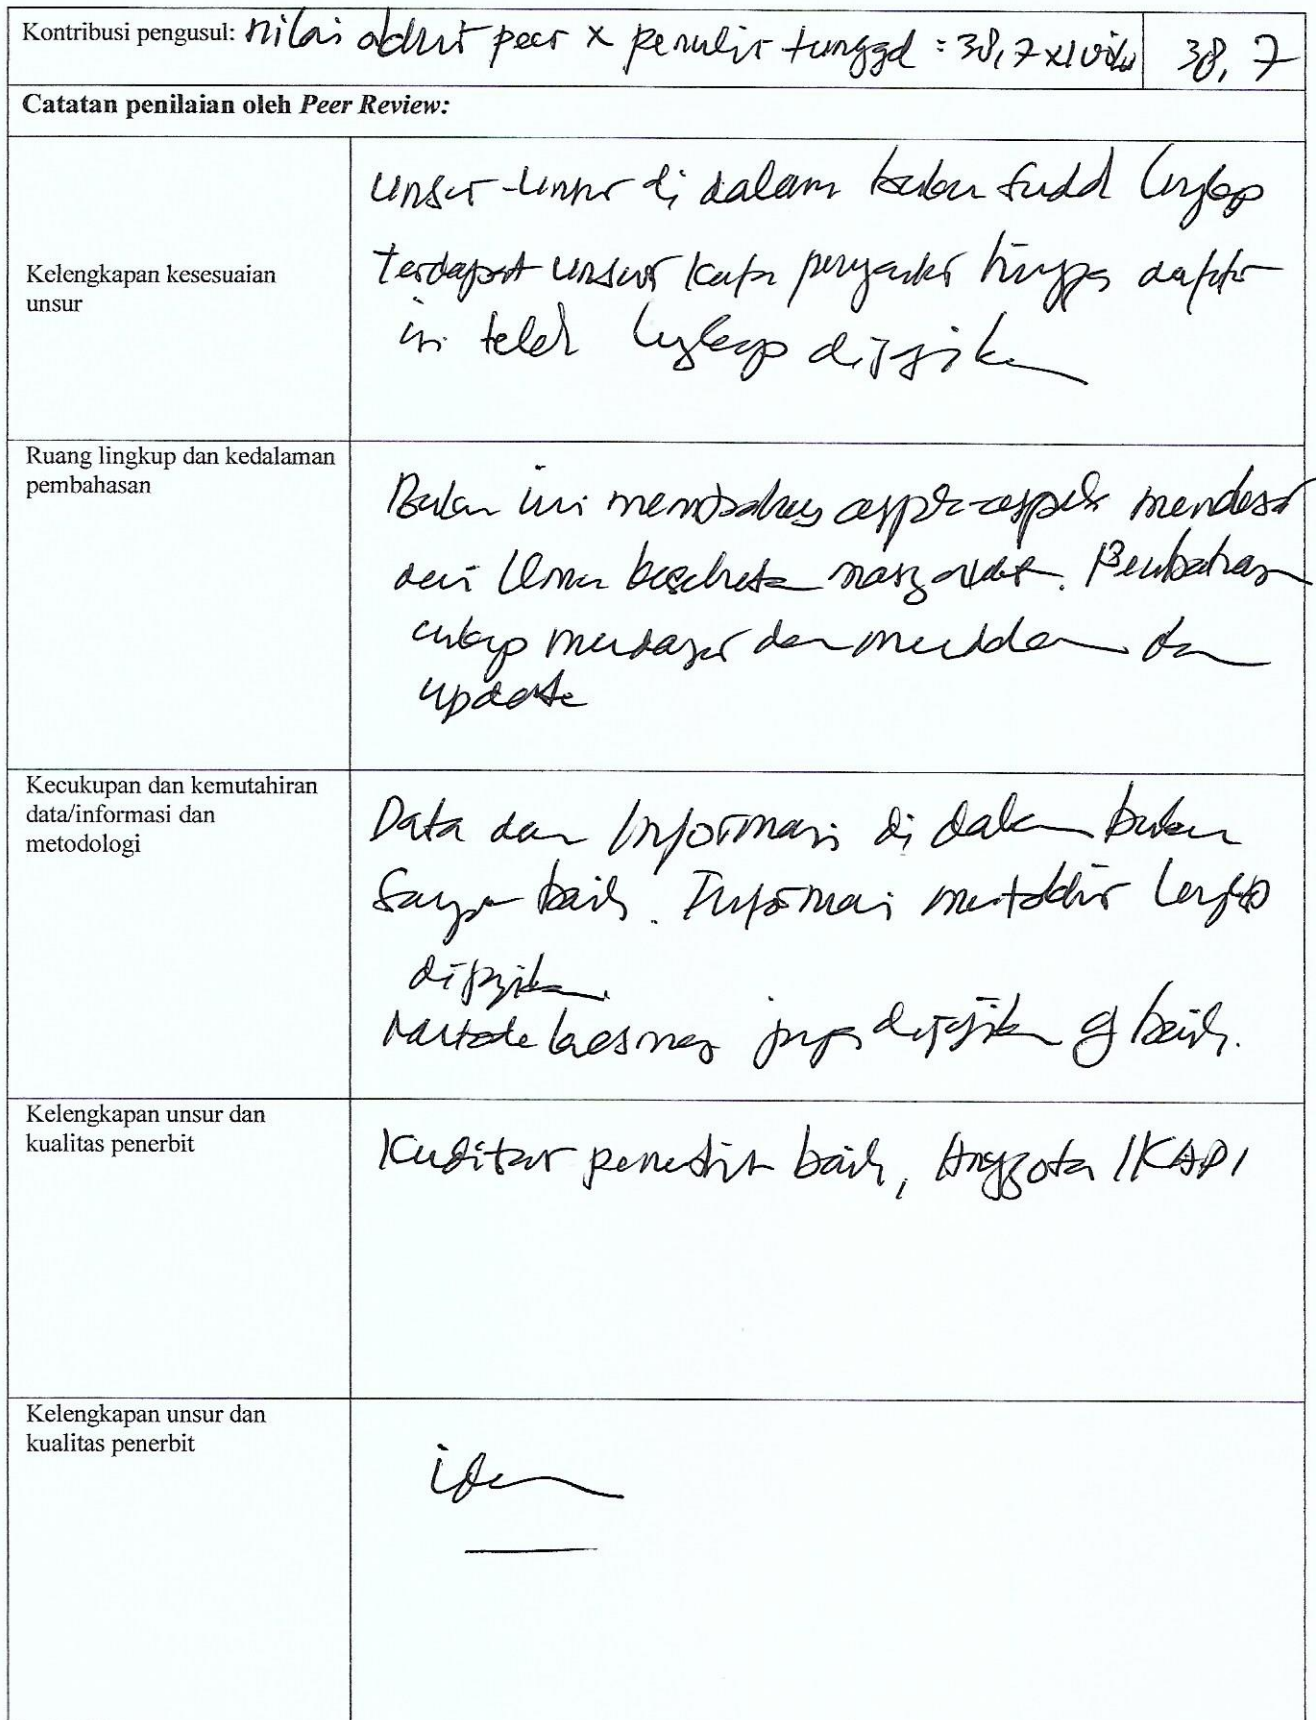 Kontribusi pengusul: nilai akhir peer x penulis tunggal = 38,7 x 38,7
Catatan penilaian oleh Peer Review:
Kelengkapan kesesuaian
unsur
Unsur-unsur di dalam buku sudah lengkap
terdapat unsur kata pengantar hingga daftar
isi telah lengkap disajikan
Ruang lingkup dan kedalaman
pembahasan
Buku ini membahas aspek-aspek mendasar
dari Ilmu kesehatan masyarakat. Pembahasan
cukup mendasar dan mendalam dan
update
Kecukupan dan kemutahiran
data/informasi dan
metodologi
Data dan Informasi di dalam buku
sangat baik. Informasi mutakhir lengkap
disajikan.
Metode kesmas juga disajikan dg baik.
Kelengkapan unsur dan
kualitas penerbit
Kualitas penerbit baik, Anggota IKAPI
Kelengkapan unsur dan
kualitas penerbit
idem